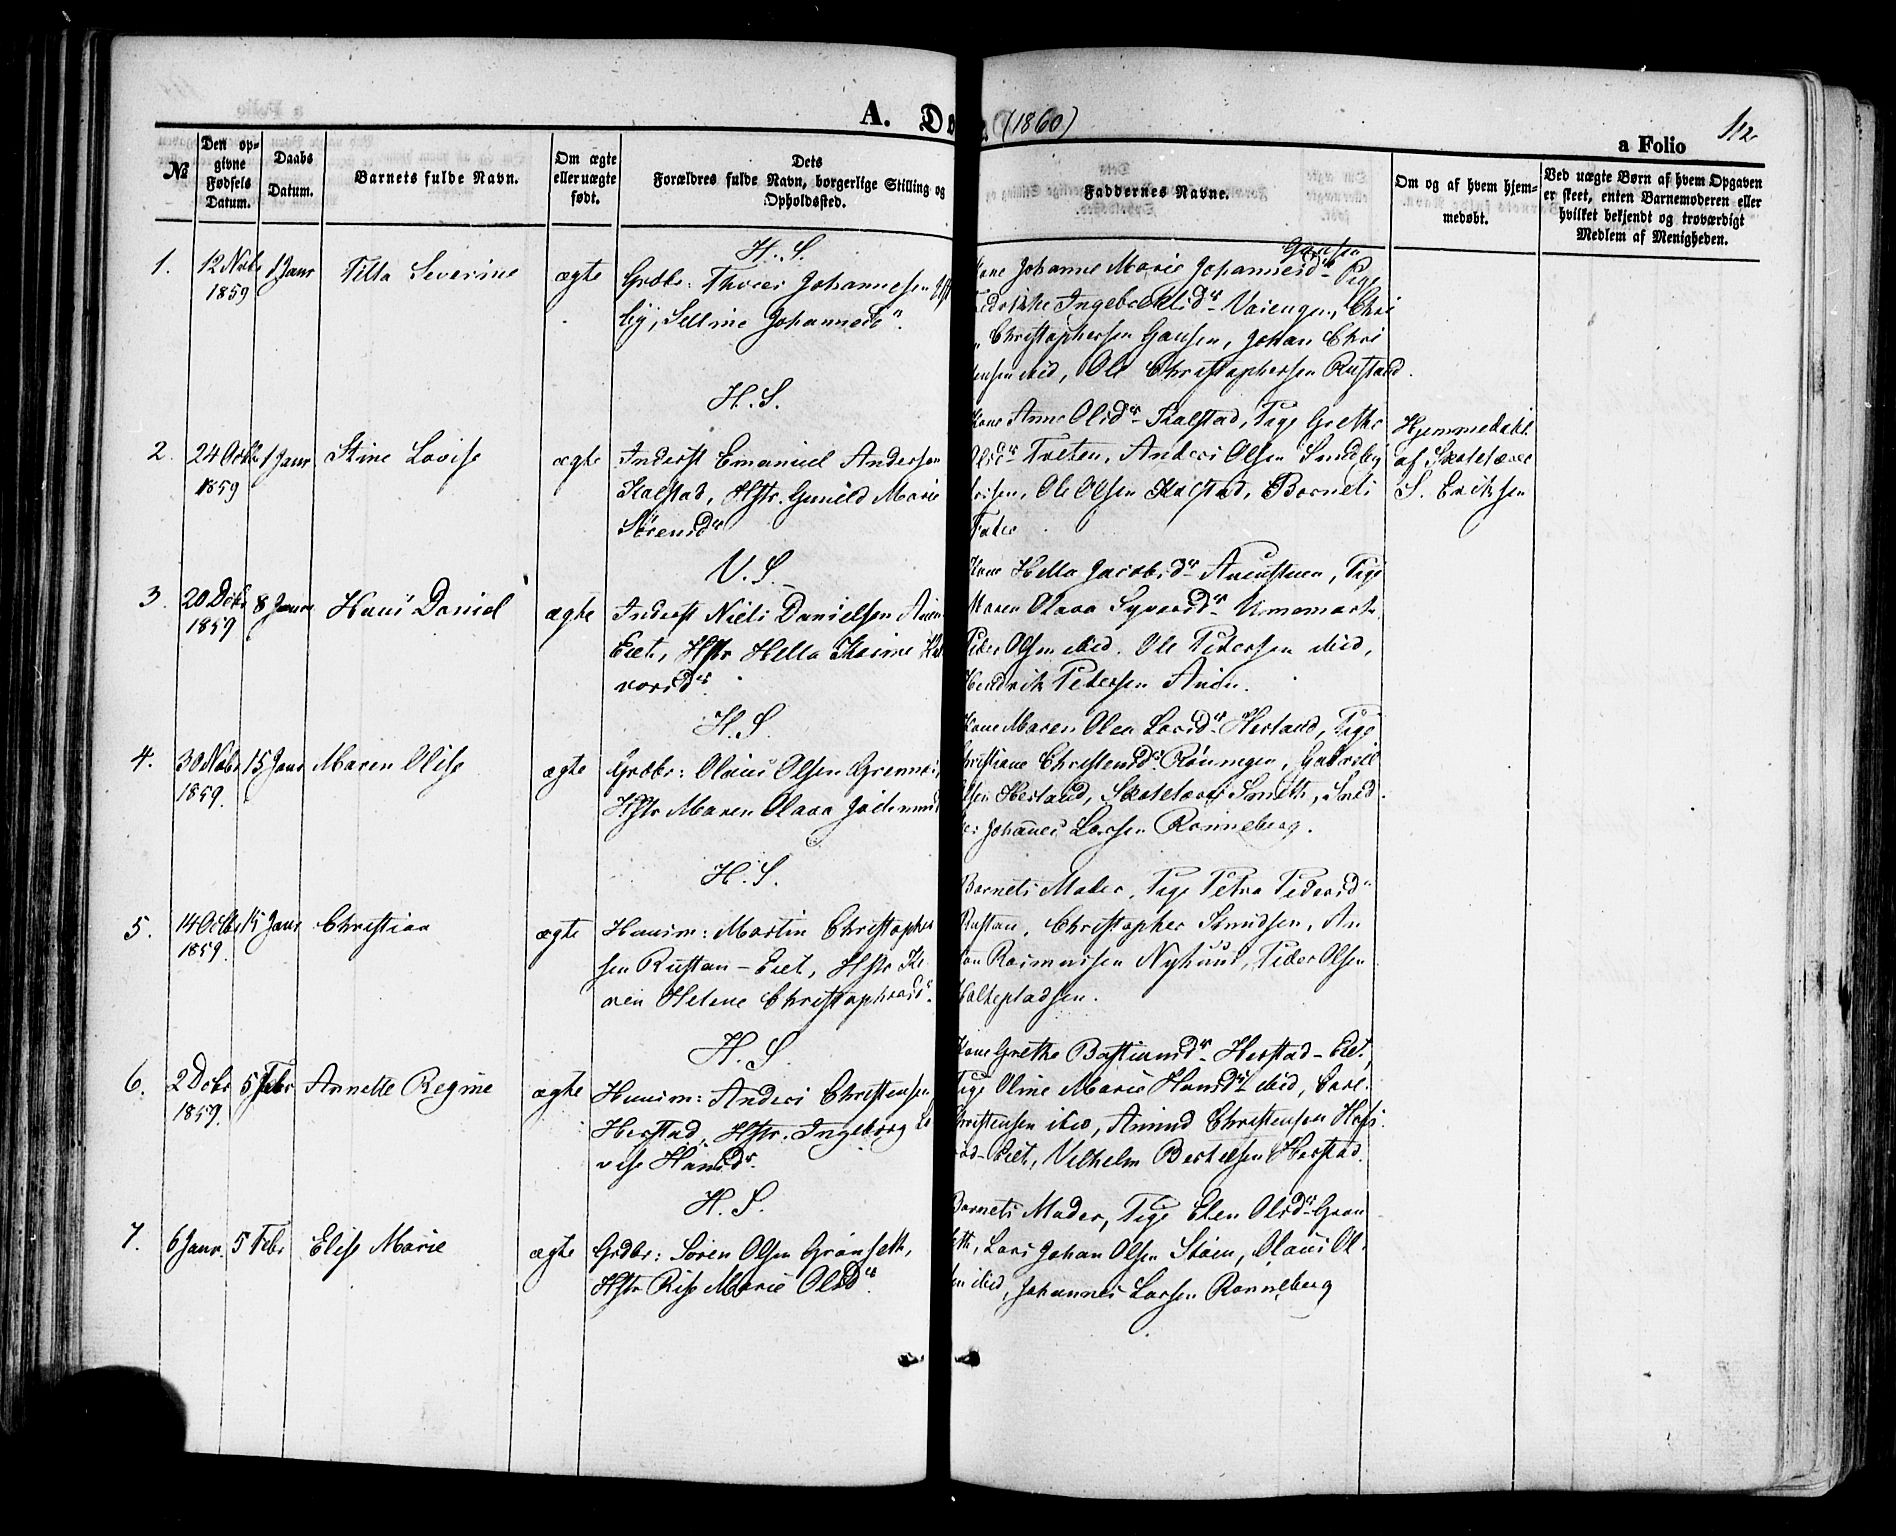 A. Dø (1860)
112
a Folio
№
Den op-
givne
Fødsels
Datum.
Daabs
Datum.
Barnets fulde Navn.
Om ægte
eller uægte
født.
Dets
Forældres fulde Navn, borgerlige Stilling og
Opholdssted.
Faddernes Navne.
Om og af hvem hjem-
medøbt.
Ved uægte Børn af hvem Opgaven
er skeet, enten Barnemoderen eller
hvilket bekjendt og troværdigt
Medlem af Menigheden.
1.
12 Novbr
1859
1 Janr
Tilla Severine
ægte
H. S.
Grdbr: Thorer Johannesen
by, Selline Johannesd.
Kone Johanne Marie Johannesdr Gausen Pige
Ingebrektsdr
Christophersen Gausen, Johan Chri
ibid, Ole Christophersen Rustand.
2.
24 Octbr
1859
1 Janr
Stine Lovise
ægte
H. S.
Inderst Emanuel Andersen
Kalstad, Hstr. Gunild Marie
Sörensdr
Kone Anne Olsdr Kalstad, Pige Grethe
Olsdr Tveten, Anders Olsen Sundby
Ole Olsen Kalstad, Barnets
Fader
Hjemmedøbt
af Skolelærer
S. Eriksen
3.
20 Dcbr
1859
8 Janr
Hans Daniel
ægte
V. S.
Inderst Niels Danielsen
Eiet, Hstr Hella Karine
vorsdr.
Kone Hella Jacobsdr Pige
Maren Olava Syversdr
Peder Olsen ibid. Ole Pedersen ibid,
Hendrik Pedersen
4.
30 Novbr
1859.
15 Janr
Maren Elise
ægte
H. S.
Grdbr: Olaus Olsen
Hstr Maren Olava
Kone Maren Olea Larsdr Herland, Pige
Christiane Christensdr Röningen, Gabriel
Olsen Herland, Skolelærer Smith,
Johanes Larsen Rönneberg.
5.
14 Octbr
1859.
15 Janr
Christian
ægte
H. S.
Huusm: Martin Christopher
sen Rustan-Eiet, Hstr Ka-
ren Helene Christophersdr.
Barnets Moder, Pige Petra Pedersd
Rustan, Christopher Knudsen, An
ton Rasmussen Nyhuus, Peder Olsen
Holtepladsen.
6.
2 Dcbr
1859.
5 Febr
Annette Regine
ægte
H. S.
Huusm: Anders Christensen,
Herstad, Hstr. Ingeborg Lo
vise Hansdr.
Kone Grethe Bastiansdr Herstad-Eiet,
Pige Oline Marie Hansdr ibid, Carl
Christensen ibid, Amund Christensen
Eiet, Vilhelm Bertelsen Herstad.
7.
6 Janr.
5 Febr
Elise Marie
ægte
H. S.
Grdbr: Sören Olsen Grönseth,
Hstr Rise Marie Olsdr.
Barnets Moder, Pige Elen Olsdr Grön
seth, Lars Johan Olsen Stöen, Olaus Ol-
sen ibid, Johannes Larsen Rönneberg